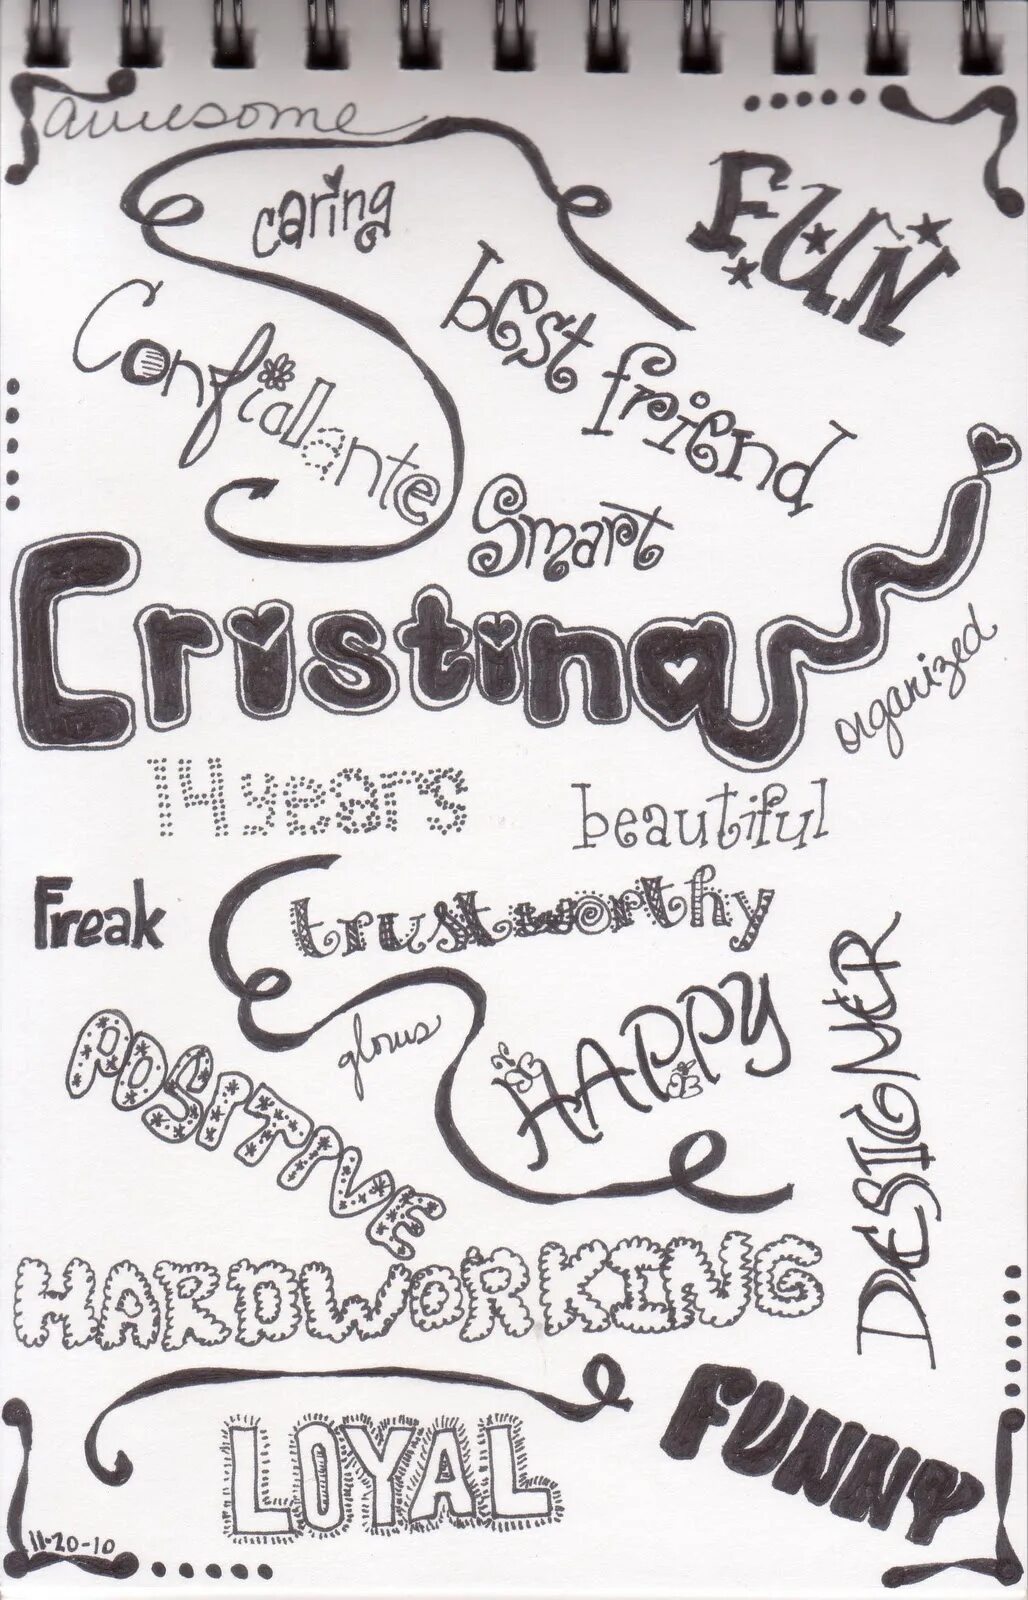 awesome
caring
FUN
Confiallante
best friend
Smart
Cristina
organized
14 years
beautiful
Freak
trustworthy
HAPPY
DESIGNER
POSITIVE
HARDWORKING
LOYAL
FUNNY
11-20-10